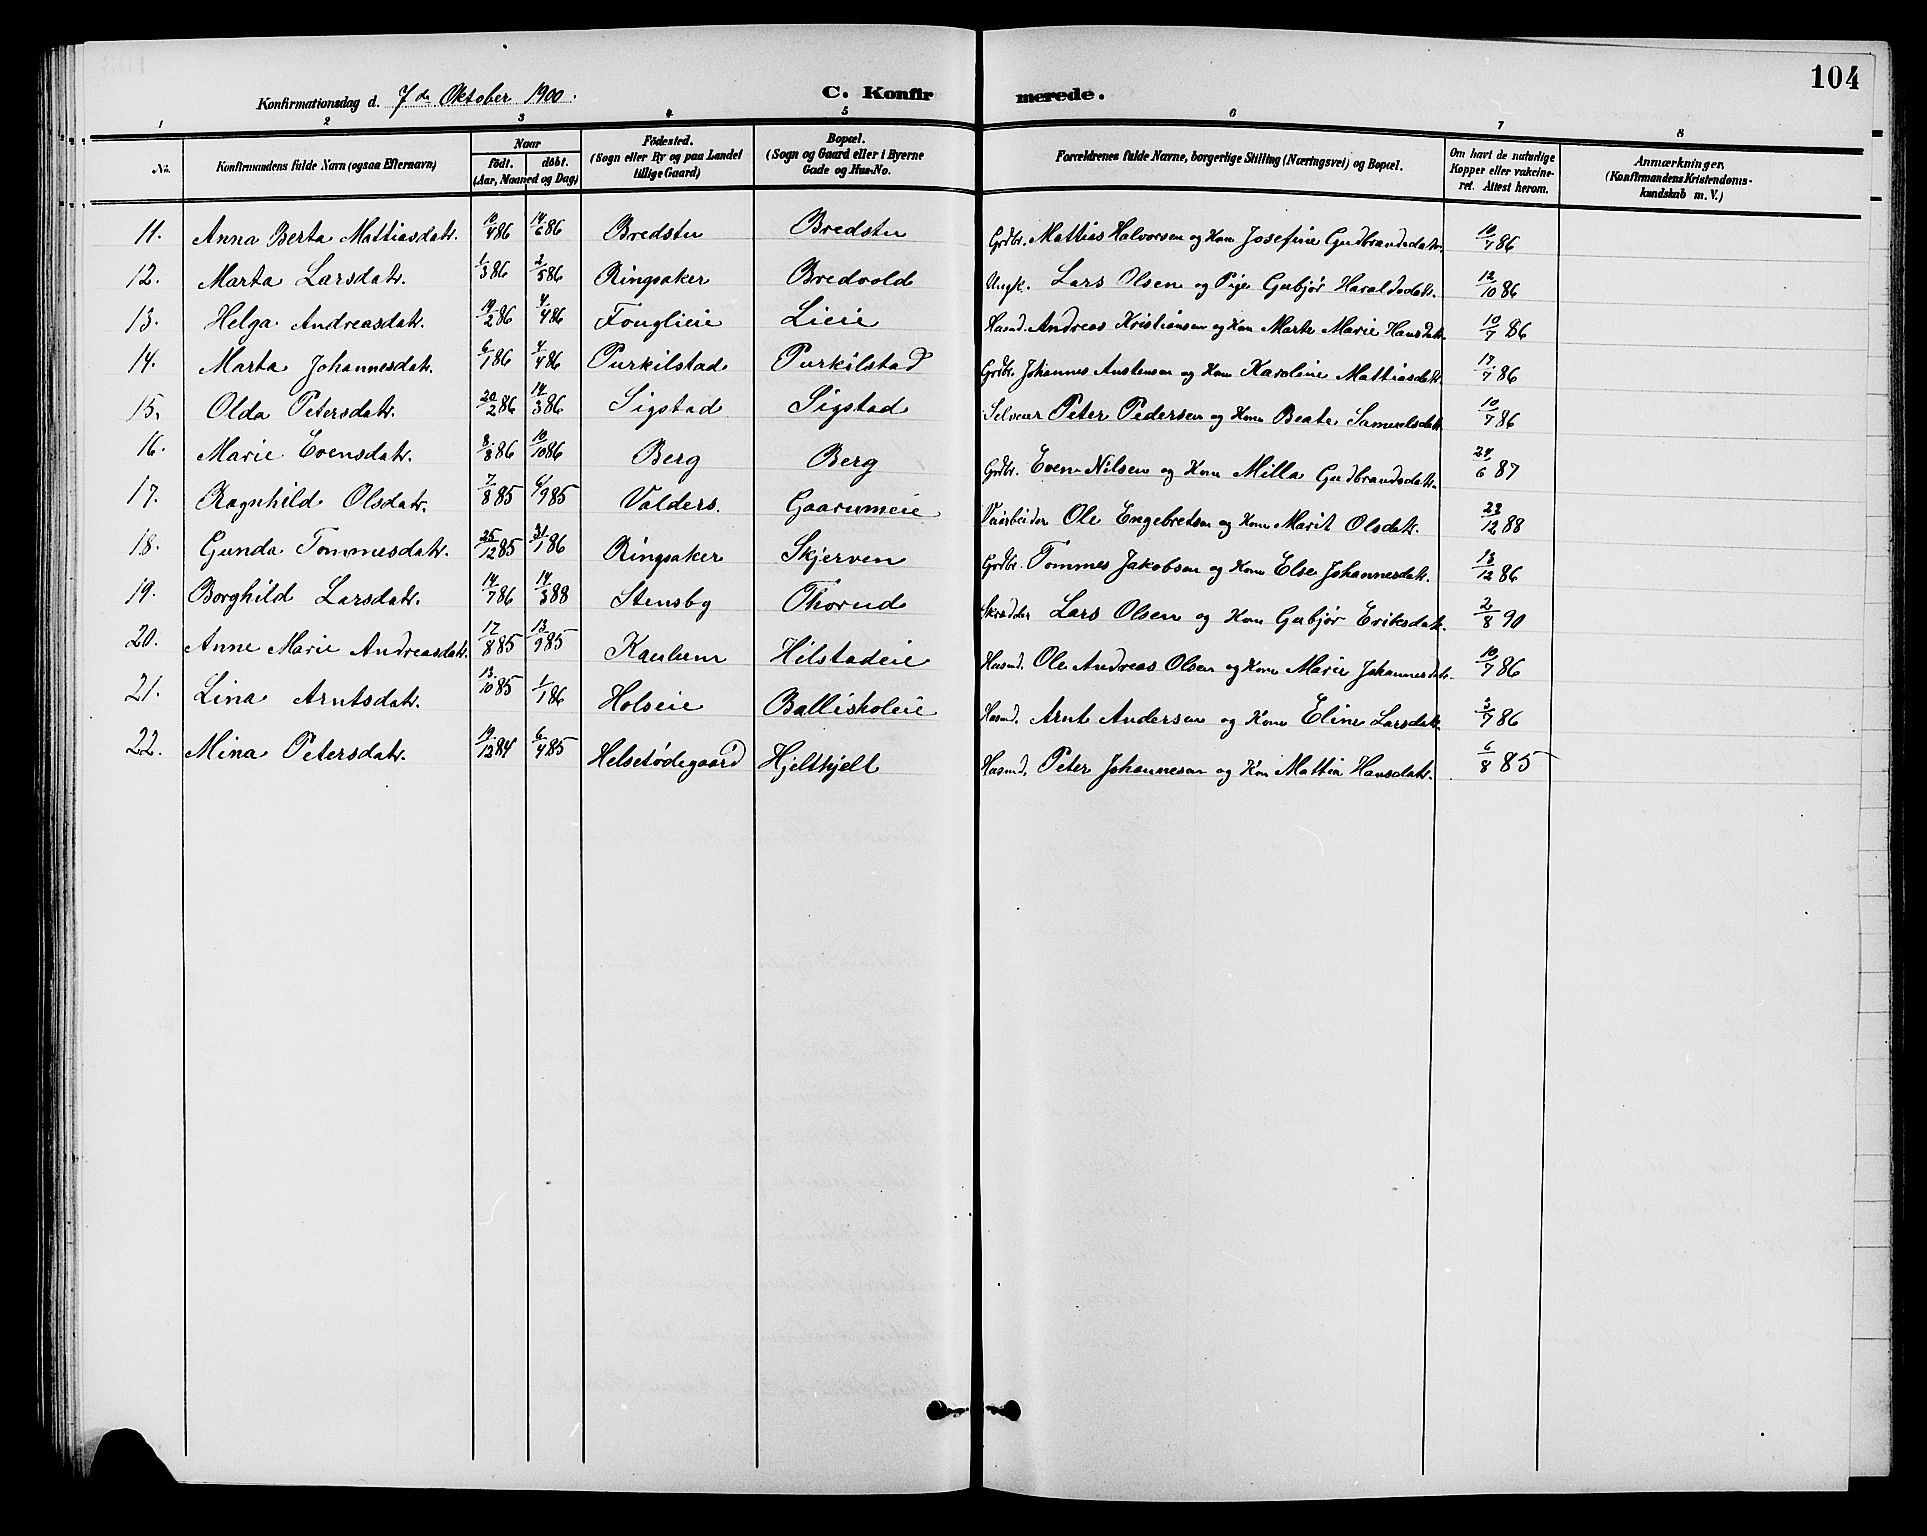 104
Konfirmationsdag d. 7de Oktober 1900. C. Konfirmerede.
1 2 3 4 5 6 7 8
No. Konfirmandens fulde Navn (ogsaa Efternavn) Naar født. døbt. (Aar, Maaned og Dag) Fødested. (Sogn eller By og paa Landet tillige Gaard) Bopæl. (Sogn og Gaard eller i Byerne Gade og Hus-No. Forældrenes fulde Navne, borgerlige Stilling (Næringsvei) og Bopæl. Om havt de naturlige Kopper eller vakcineret. Attest herom. Anmærkninger. (Konfirmandens Kristendomskundskab m. V.)
11. Anna Berta Mattiasdatr. 10/4 86 14/6 86 Bredstu Bredstu Grdbr. Mattias Halvorsen og Kone Josefine Gudbrandsdatr. 10/7 86
12. Marta Larsdatr. 1/3 86 2/5 86 Ringsaker Bredvold Ungk. Lars Olsen og Pige Gubjør Haraldsdatr. 12/10 86
13. Helga Andreasdatr. 19/2 86 4/4 86 Fouglieie Lieie Husmd. Andreas Kristiansen og Kone Marte Marie Hansdatr. 10/7 86
14. Marta Johannesdatr. 6/1 86 4/4 86 Purkilstad Purkilstad Grdbr. Johannes Austensen og Kone Karoline Mattiasdatr. 17/7 86
15. Olda Petersdatr. 20/2 86 14/3 86 Sigstad Sigstad Selveier Peter Pedersen og Kone Beate Samuelsdatr. 10/7 86
16. Marie Evensdatr. 8/8 86 10/10 86 Berg Berg Grdbr. Even Nilsen og Kone Milla Gudbrandsdatr. 24/6 87
17. Ragnhild Olsdatr. 7/8 85 6/9 85 Valders. Gaarumeie Veiarbeider Ole Engebretsen og Kone Marit Olsdatr. 23/12 88
18. Gunda Tommesdatr. 25/12 85 31/1 86 Ringsaker Skjerven Grdbr. Tommes Jakobsen og Kone Else Johannesdatr. 13/12 86
19. Borghild Larsdatr. 14/7 86 14/3 88 Stensby Thorud Skrædder Lars Olsen og Kone Gubjør Eriksdatr. 2/8 90
20. Anne Marie Andreasdatr. 17/8 85 13/9 85 Kaulum Hilstadeie Husmd. Ole Andreas Olsen og Kone Marie Johannesdatr. 10/7 86
21. Lina Arntsdatr. 13/10 85 1/1 86 Holseie Ballisholeie Husmd. Arnt Andersen og Kone Eline Larsdatr. 3/7 86
22. Mina Petersdatr. 19/12 84 6/4 85 Helsetødegaard Hjeltkjelt Husmd. Peter Johannesen og Kone Mattia Hansdatr. 6/8 85